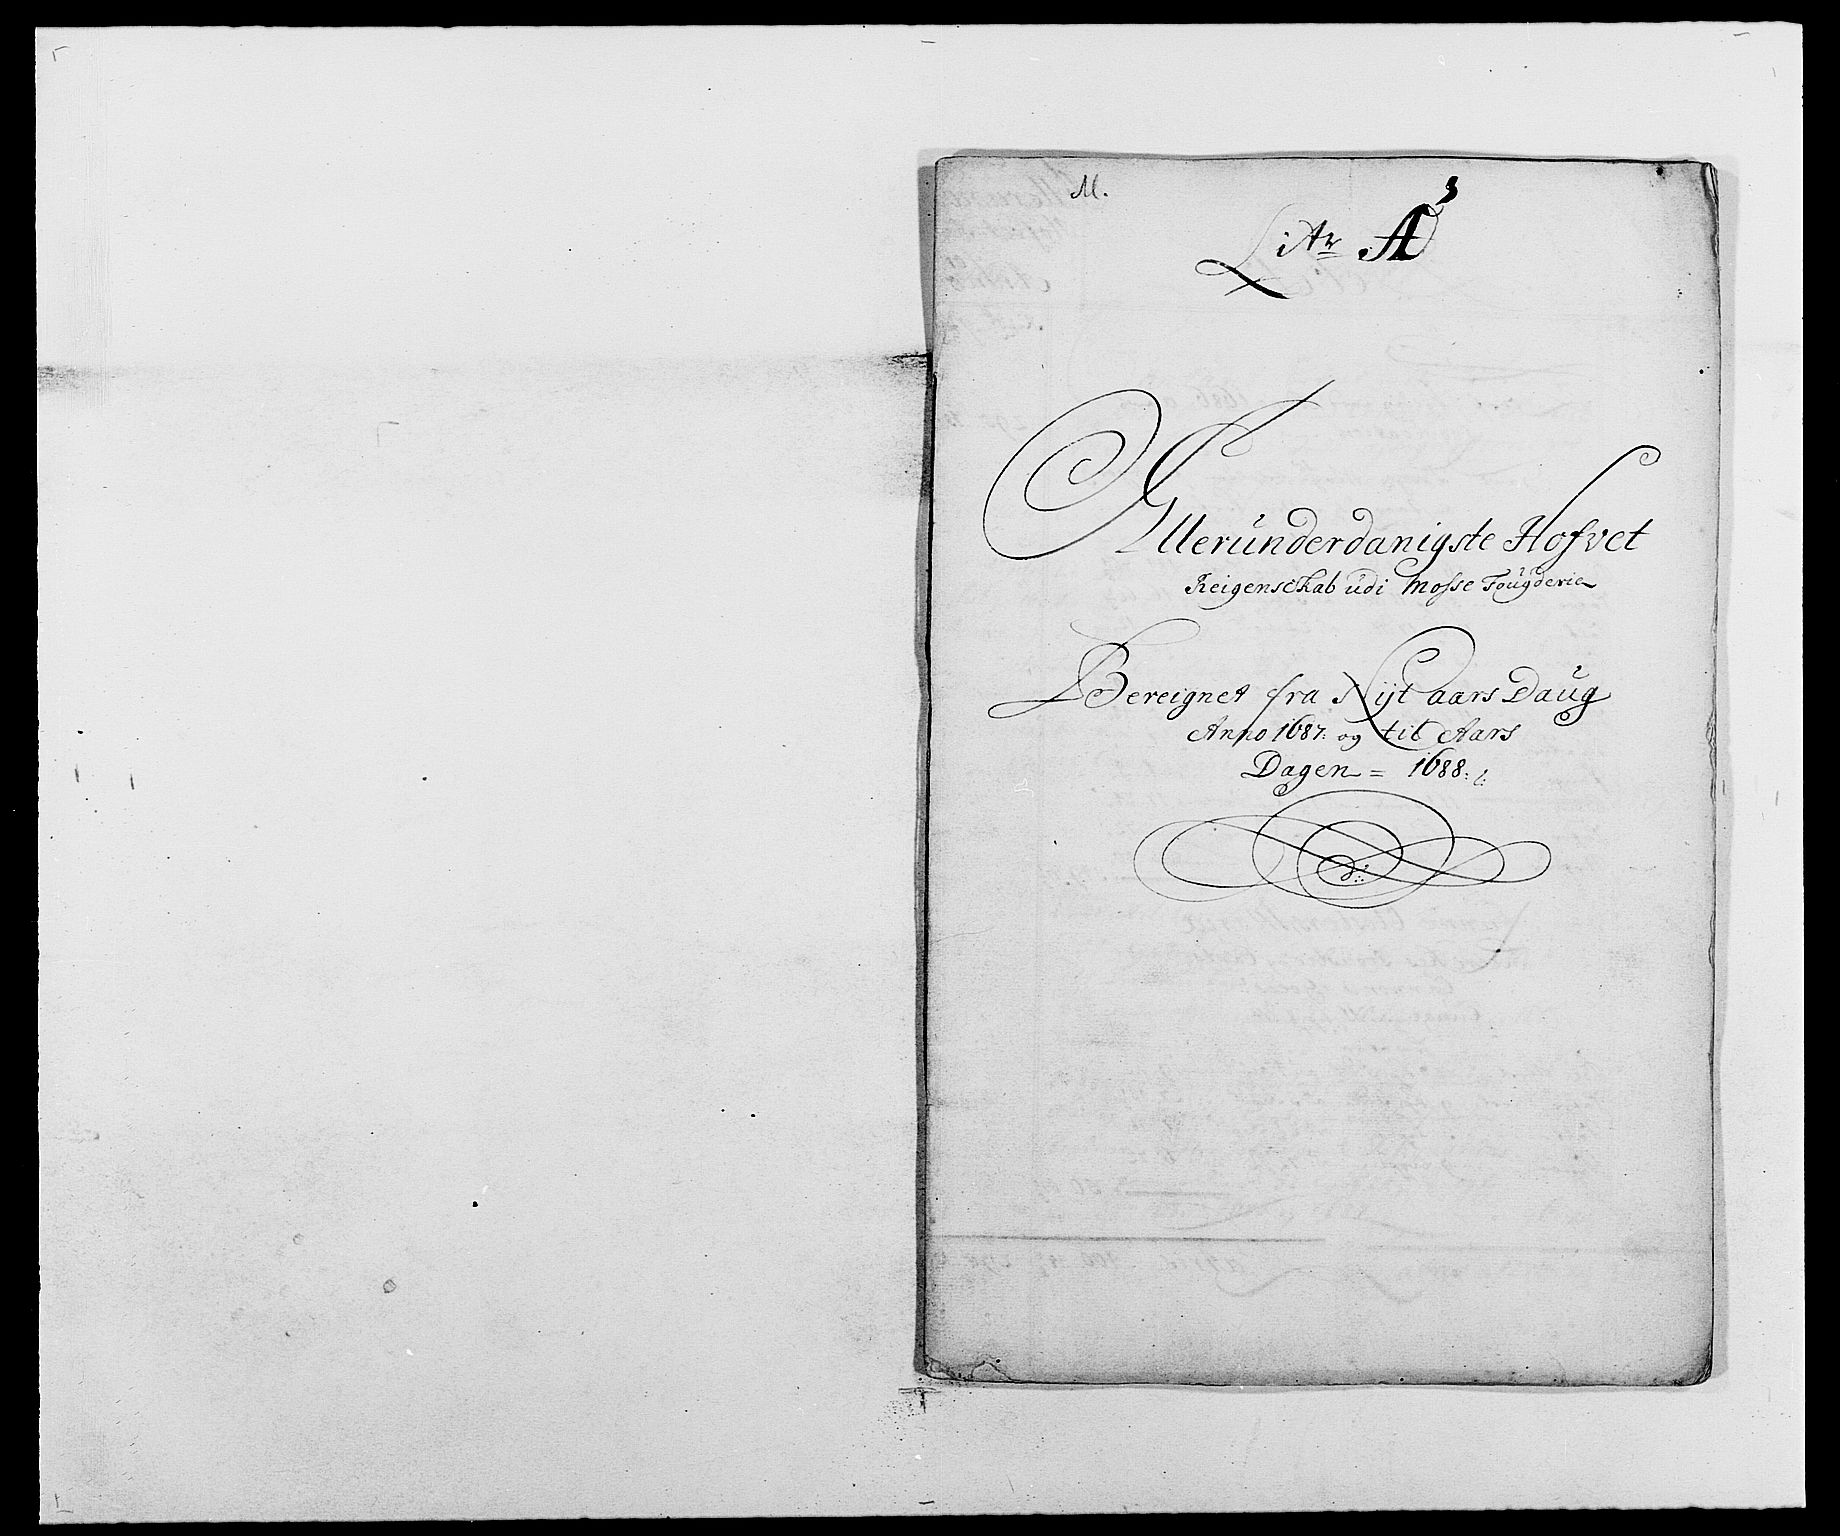 M.
Litr A
Alleründerdanigste Hofvet
Reigenschab üdi Mosse Foügderie
Bereignet fra Nyt aars Daüg
Anno 1687: og til Aars
Dagen = 1688: